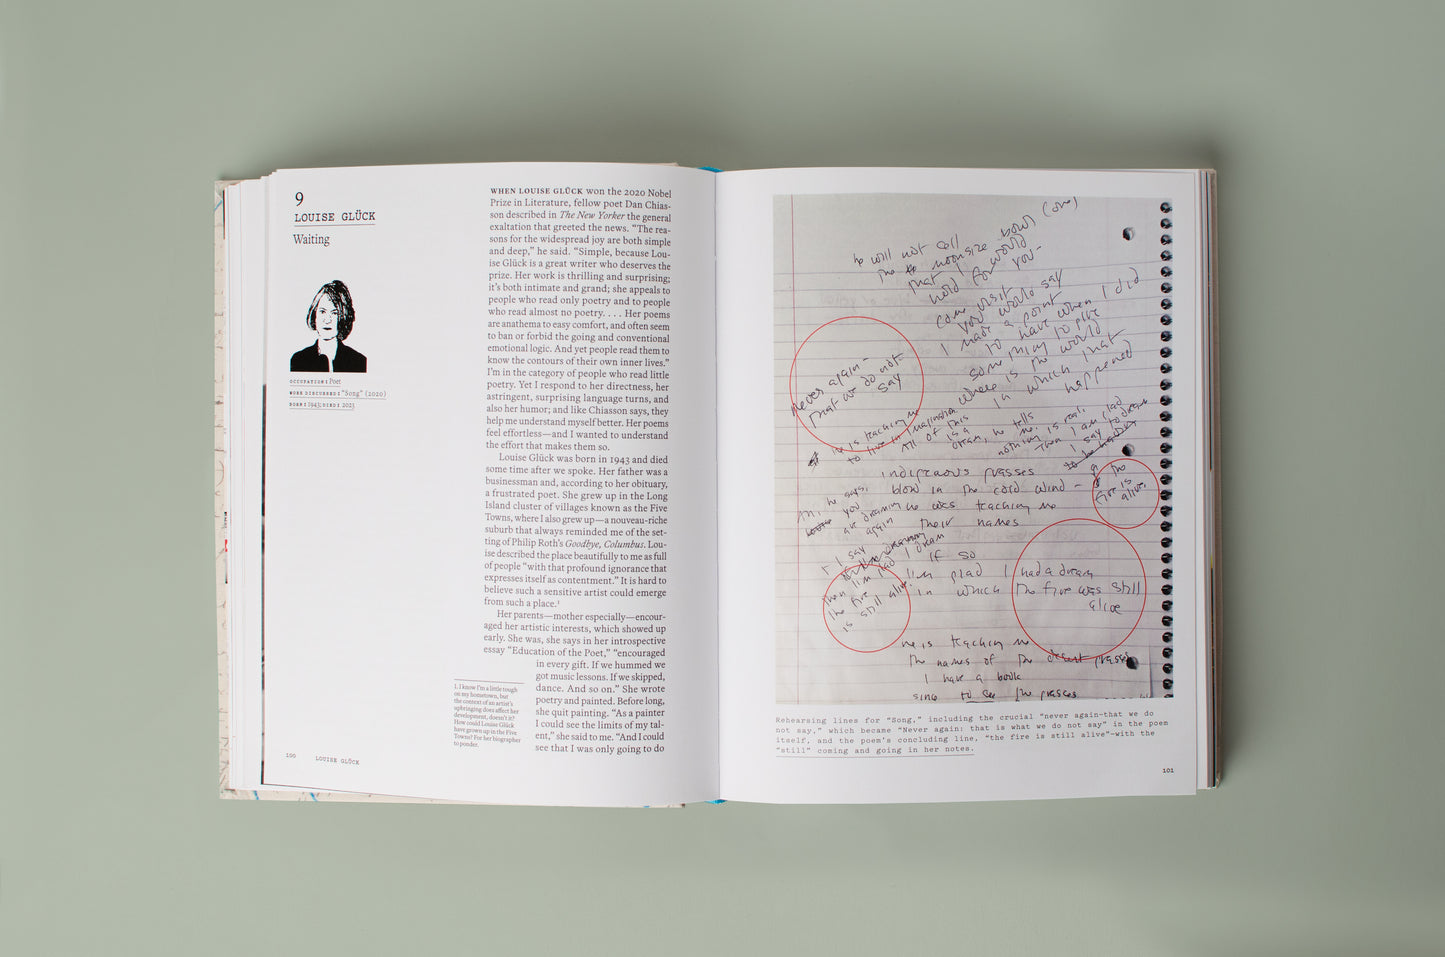 9
LOUISE GLÜCK
Waiting
OCCUPATION: Poet
WORK DISCUSSED: "Song" (2020)
BORN: 1943; DIED: 2023
WHEN LOUISE GLÜCK won the 2020 Nobel
Prize in Literature, fellow poet Dan Chias-
son described in The New Yorker the general
exaltation that greeted the news. “The rea-
sons for the widespread joy are both simple
and deep,” he said. “Simple, because Lou-
ise Glück is a great writer who deserves the
prize. Her work is thrilling and surprising;
it’s both intimate and grand; she appeals to
people who read only poetry and to people
who read almost no poetry. . . . Her poems
are anathema to easy comfort, and often seem
to ban or forbid the going and conventional
emotional logic. And yet people read them to
know the contours of their own inner lives.”
I’m in the category of people who read little
poetry. Yet I respond to her directness, her
astringent, surprising language turns, and
also her humor; and like Chiasson says, they
help me understand myself better. Her poems
feel effortless—and I wanted to understand
the effort that makes them so.
Louise Glück was born in 1943 and died
some time after we spoke. Her father was a
businessman and, according to her obituary,
a frustrated poet. She grew up in the Long
Island cluster of villages known as the Five
Towns, where I also grew up—a nouveau-riche
suburb that always reminded me of the set-
ting of Philip Roth’s Goodbye, Columbus. Lou-
ise described the place beautifully to me as full
of people “with that profound ignorance that
expresses itself as contentment.” It is hard to
believe such a sensitive artist could emerge
from such a place.¹
Her parents—mother especially—encour-
aged her artistic interests, which showed up
early. She was, she says in her introspective
essay “Education of the Poet,” “encouraged
in every gift. If we hummed we
got music lessons. If we skipped,
dance. And so on.” She wrote
poetry and painted. Before long,
she quit painting. “As a painter
I could see the limits of my tal-
ent,” she said to me. “And I could
see that I was only going to do
1. I know I’m a little tough
on my hometown, but
the context of an artist’s
upbringing does affect her
development, doesn’t it?
How could Louise Glück
have grown up in the Five
Towns? For her biographer
to ponder.
100 LOUISE GLÜCK
he will not call
the moonsize bowl (one)
that I would
hold for you –
come visit
you would say
I made a point
to have when I did
something to give
where is the world
in which that
happened
never again –
that we do not
say
he is teaching me
to live in imagination
All of this
is a
dream, he tells
me. nothing is real.
Then I am glad
I say to dream
indigenous grasses
blow in the cold wind –
he was teaching me
their names
the
fire is
alive.
Ah, he says,
you
are dreaming
again
+ I say
then I'm glad I dream
the fire
is still alive.
if so
I'm glad I had a dream
in which the fire was still
alive
he is teaching me
the names of the desert grasses
I have a book
since to see the grasses
Rehearsing lines for "Song," including the crucial "never again—that we do
not say," which became "Never again: that is what we do not say" in the poem
itself, and the poem's concluding line, "the fire is still alive"—with the
"still" coming and going in her notes.
101